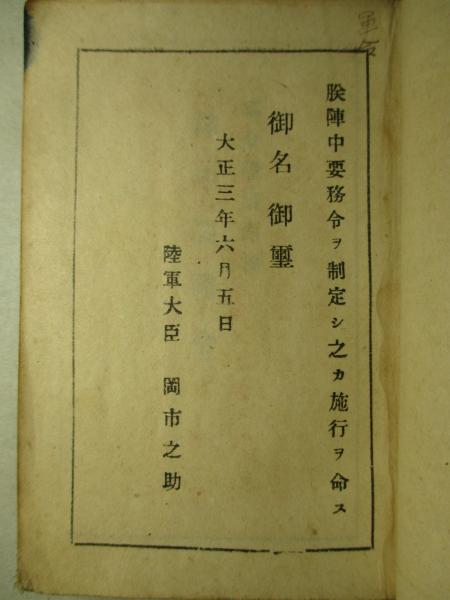 軍令
朕陣中要務令ヲ制定シ之カ施行ヲ命ス
御名御璽
大正三年六月五日
陸軍大臣 岡市之助